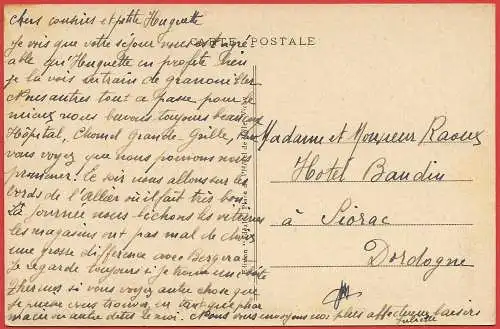 Chers cousins et petite Huguette
CARTE POSTALE
Je vois que votre séjour vous est agré
able qu'Huguette en profite bien
je la vois en train de grenouiller
Nous autres tout ce passe pour le
mieux nous buvons toujours beaucoup
Hôpital, Chomel Grande Grille,
vous voyez que nous pouvons nous
promener. Le soir nous allons sur les
bords de l'Allier où il fait très bon.
La journée nous léchons les vitrines
les magasins ont pas mal de choix
une grosse différence avec Bergerac
Je regarde toujours si je trouve une
si vous voyez autre chose que
je puisse trouver en tant que phar
macie ou autre dites le moi. Nous vous envoyons nos plus affectueux baisers
Juliette
Madame et Monsieur Raoux
Hotel Baudin
à Siorac
Dordogne